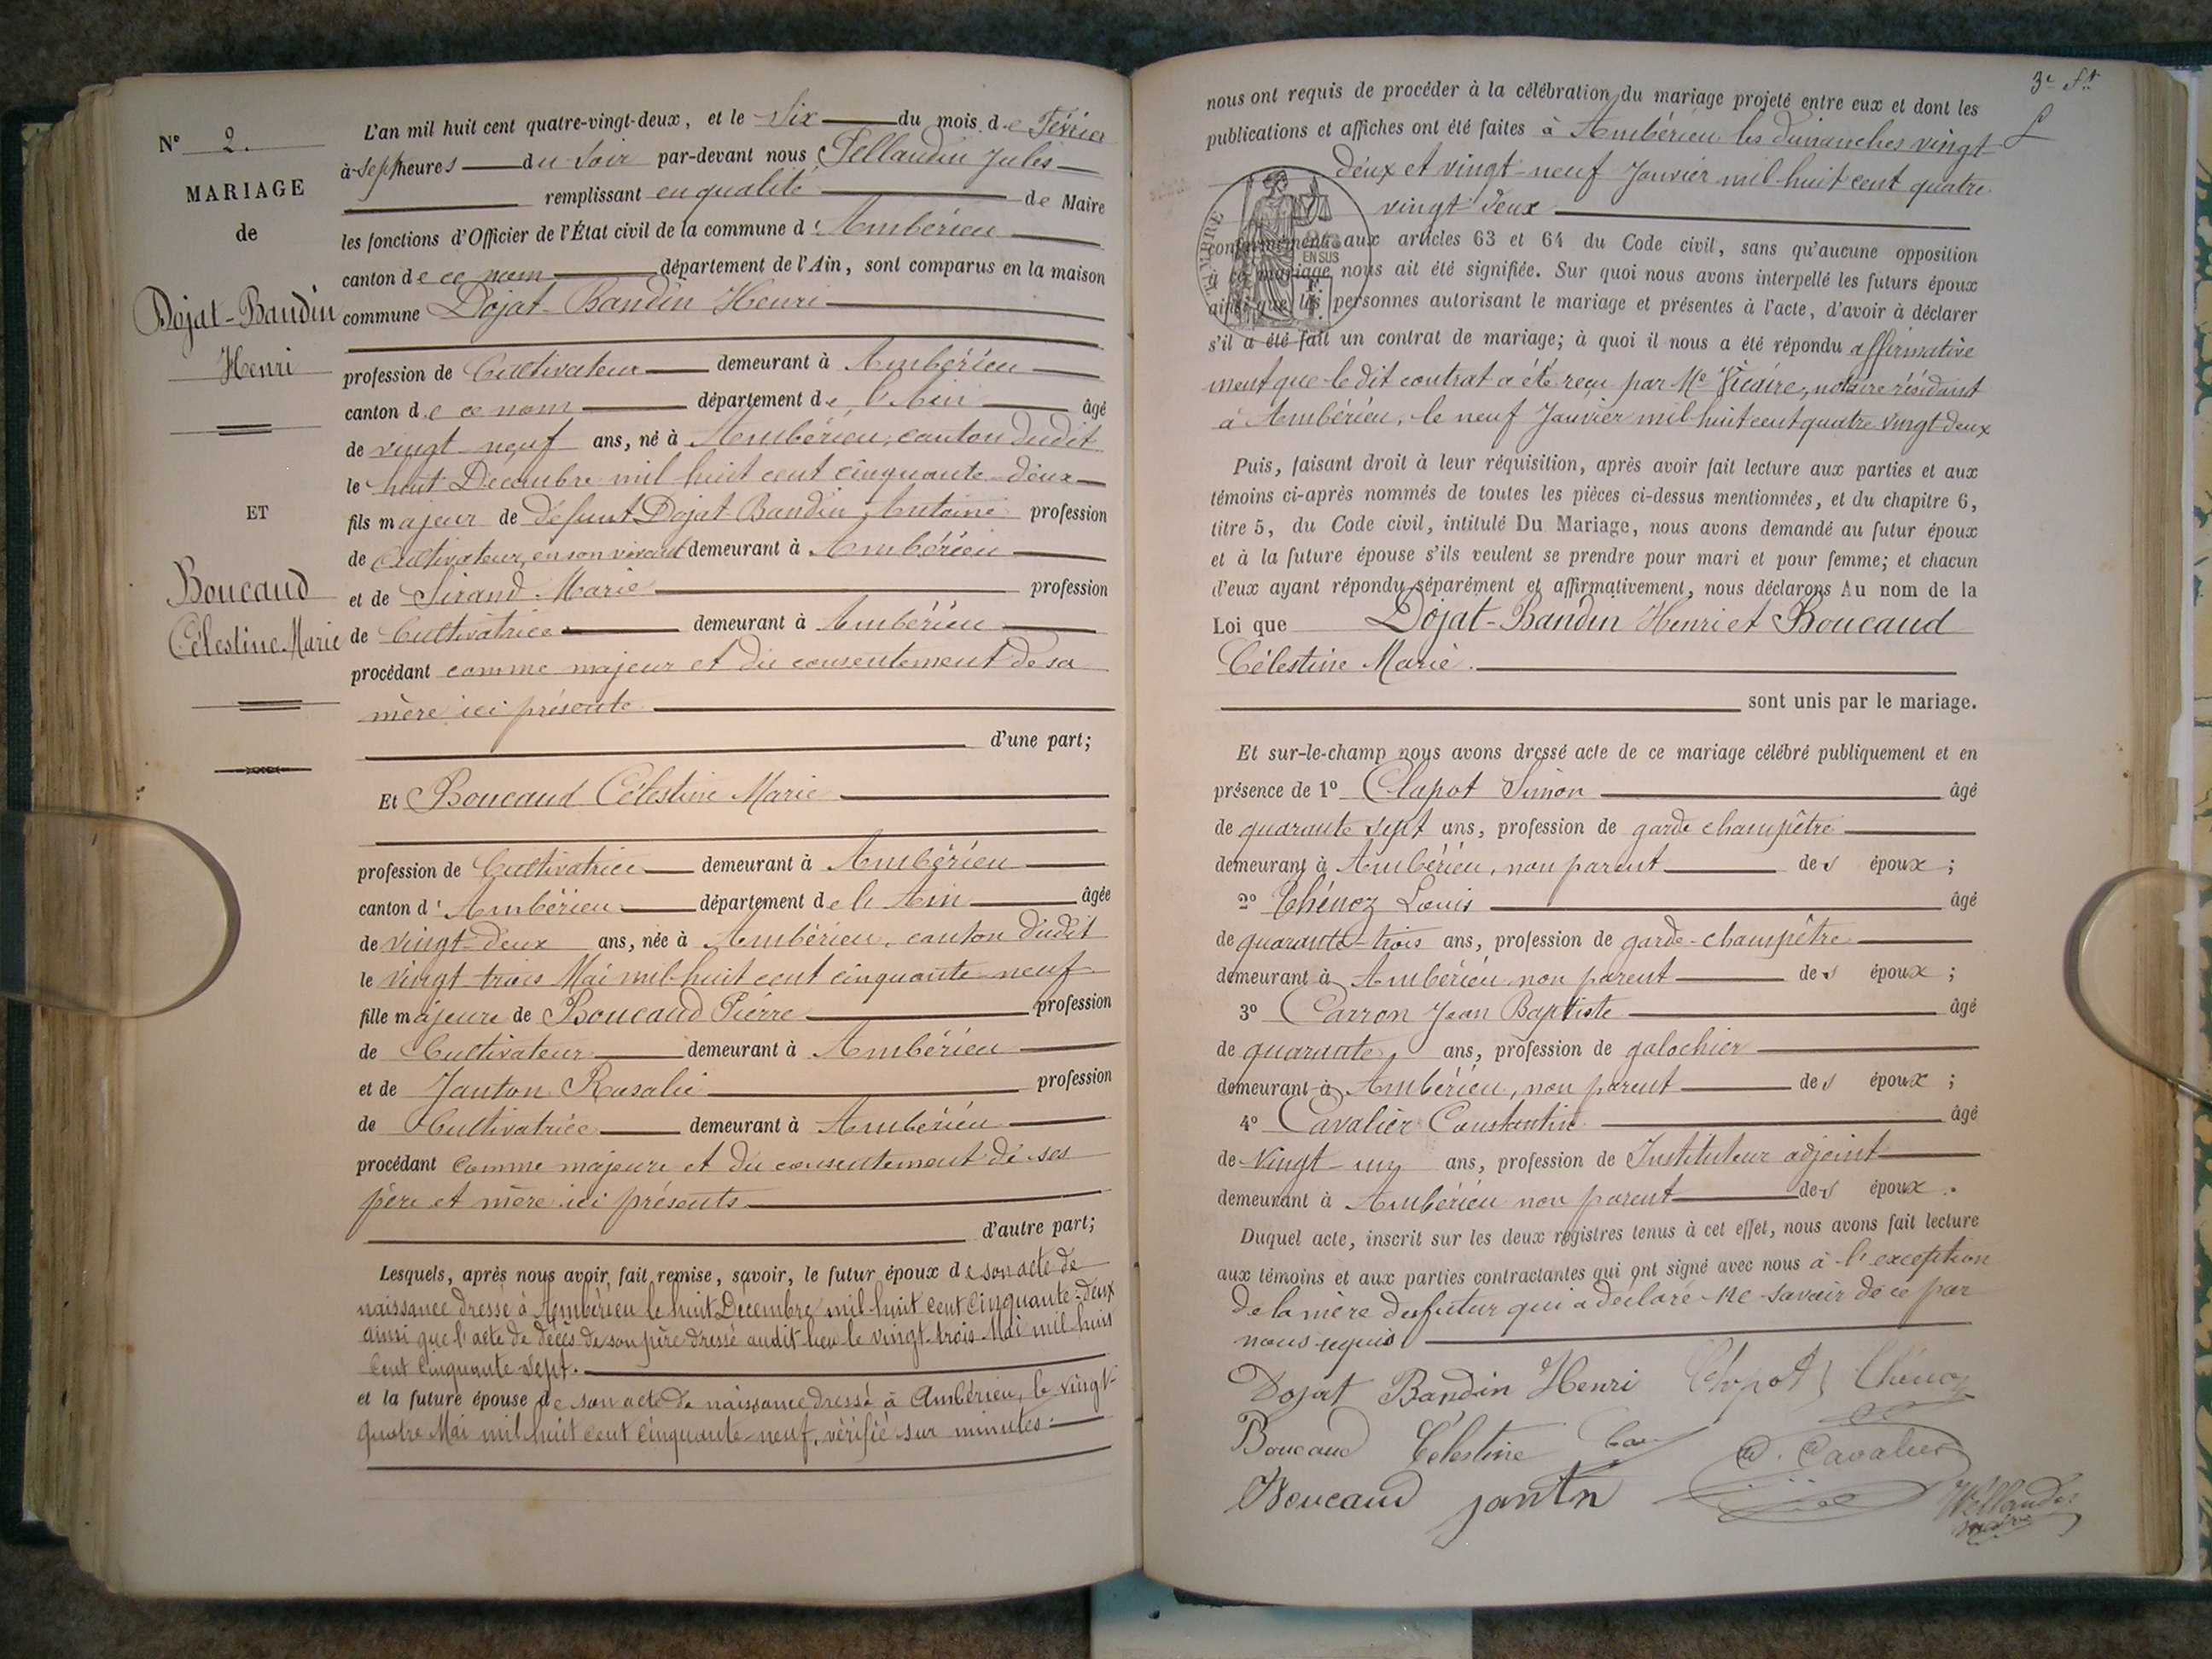 N° 2.
MARIAGE
de
Dojat-Baudin
Henri
ET
Boucaud
Célestine Marie
L'an mil huit cent quatre-vingt-deux, et le Six du mois de Février
à Sept heures du Soir par-devant nous Pellaudin Jules
remplissant en qualité de Maire
les fonctions d'Officier de l'État civil de la commune d'Ambérieu
canton de ce nom département de l'Ain, sont comparus en la maison
commune Dojat-Baudin Henri
profession de Cultivateur demeurant à Ambérieu
canton de ce nom département de l'Ain âgé
de vingt neuf ans, né à Ambérieu, canton dudit
le huit Décembre mil huit cent cinquante-deux
fils majeur de défunt Dojat Baudin Antoine profession
de Cultivateur, en son vivant demeurant à Ambérieu
et de Sirand Marie profession
de Cultivatrice demeurant à Ambérieu
procédant comme majeur et du consentement de sa
mère ici présente
d'une part;
Et Boucaud Célestine Marie
profession de Cultivatrice demeurant à Ambérieu
canton d'Ambérieu département de l'Ain âgée
de vingt-deux ans, née à Ambérieu, canton dudit
le vingt trois Mai mil huit cent cinquante neuf
fille majeure de Boucaud Pierre profession
de Cultivateur demeurant à Ambérieu
et de Janton Rosalie profession
de Cultivatrice demeurant à Ambérieu
procédant comme majeure et du consentement de ses
père et mère ici présents
d'autre part;
Lesquels, après nous avoir fait remise, savoir, le futur époux de son acte de
naissance dressé à Ambérieu le huit Décembre mil huit cent cinquante-deux
ainsi que l'acte de décès de son père dressé audit lieu le vingt-trois Mai mil huit
cent cinquante sept.
et la future épouse de son acte de naissance dressé à Ambérieu, le vingt-
quatre Mai mil huit cent cinquante-neuf, vérifié sur minutes.
3e ft
nous ont requis de procéder à la célébration du mariage projeté entre eux et dont les
publications et affiches ont été faites à Ambérieu les dimanches vingt-
deux et vingt-neuf Janvier mil huit cent quatre
vingt deux
TIMBRE
EN SUS
conformément aux articles 63 et 64 du Code civil, sans qu'aucune opposition
à ce mariage nous ait été signifiée. Sur quoi nous avons interpellé les futurs époux
ainsi que les personnes autorisant le mariage et présentes à l'acte, d'avoir à déclarer
s'il a été fait un contrat de mariage; à quoi il nous a été répondu affirmative
ment que le dit contrat a été reçu par Me Vicaire, notaire résidant
à Ambérieu, le neuf Janvier mil huit cent quatre vingt-deux
Puis, faisant droit à leur réquisition, après avoir fait lecture aux parties et aux
témoins ci-après nommés de toutes les pièces ci-dessus mentionnées, et du chapitre 6,
titre 5, du Code civil, intitulé Du Mariage, nous avons demandé au futur époux
et à la future épouse s'ils veulent se prendre pour mari et pour femme; et chacun
d'eux ayant répondu séparément et affirmativement, nous déclarons Au nom de la
Loi que Dojat-Baudin Henri et Boucaud
Célestine Marie.
sont unis par le mariage.
Et sur-le-champ nous avons dressé acte de ce mariage célébré publiquement et en
présence de 1° Clapot Simon âgé
de quarante sept ans, profession de garde champêtre
demeurant à Ambérieu, non parent des époux;
2° Chénoz Louis âgé
de quarante-trois ans, profession de garde-champêtre
demeurant à Ambérieu non parent des époux;
3° Carron Jean Baptiste âgé
de quarante ans, profession de galochier
demeurant à Ambérieu, non parent des époux;
4° Cavalier Constantin âgé
de vingt-un ans, profession de Instituteur adjoint
demeurant à Ambérieu non parent des époux.
Duquel acte, inscrit sur les deux registres tenus à cet effet, nous avons fait lecture
aux témoins et aux parties contractantes qui ont signé avec nous à l'exception
de la mère du futur qui a déclaré ne savoir de ce par
nous requis
Dojat Baudin Henri Clapot Chénoz
Boucaud Célestine C. Cavalier
Boucaud jantn
maire